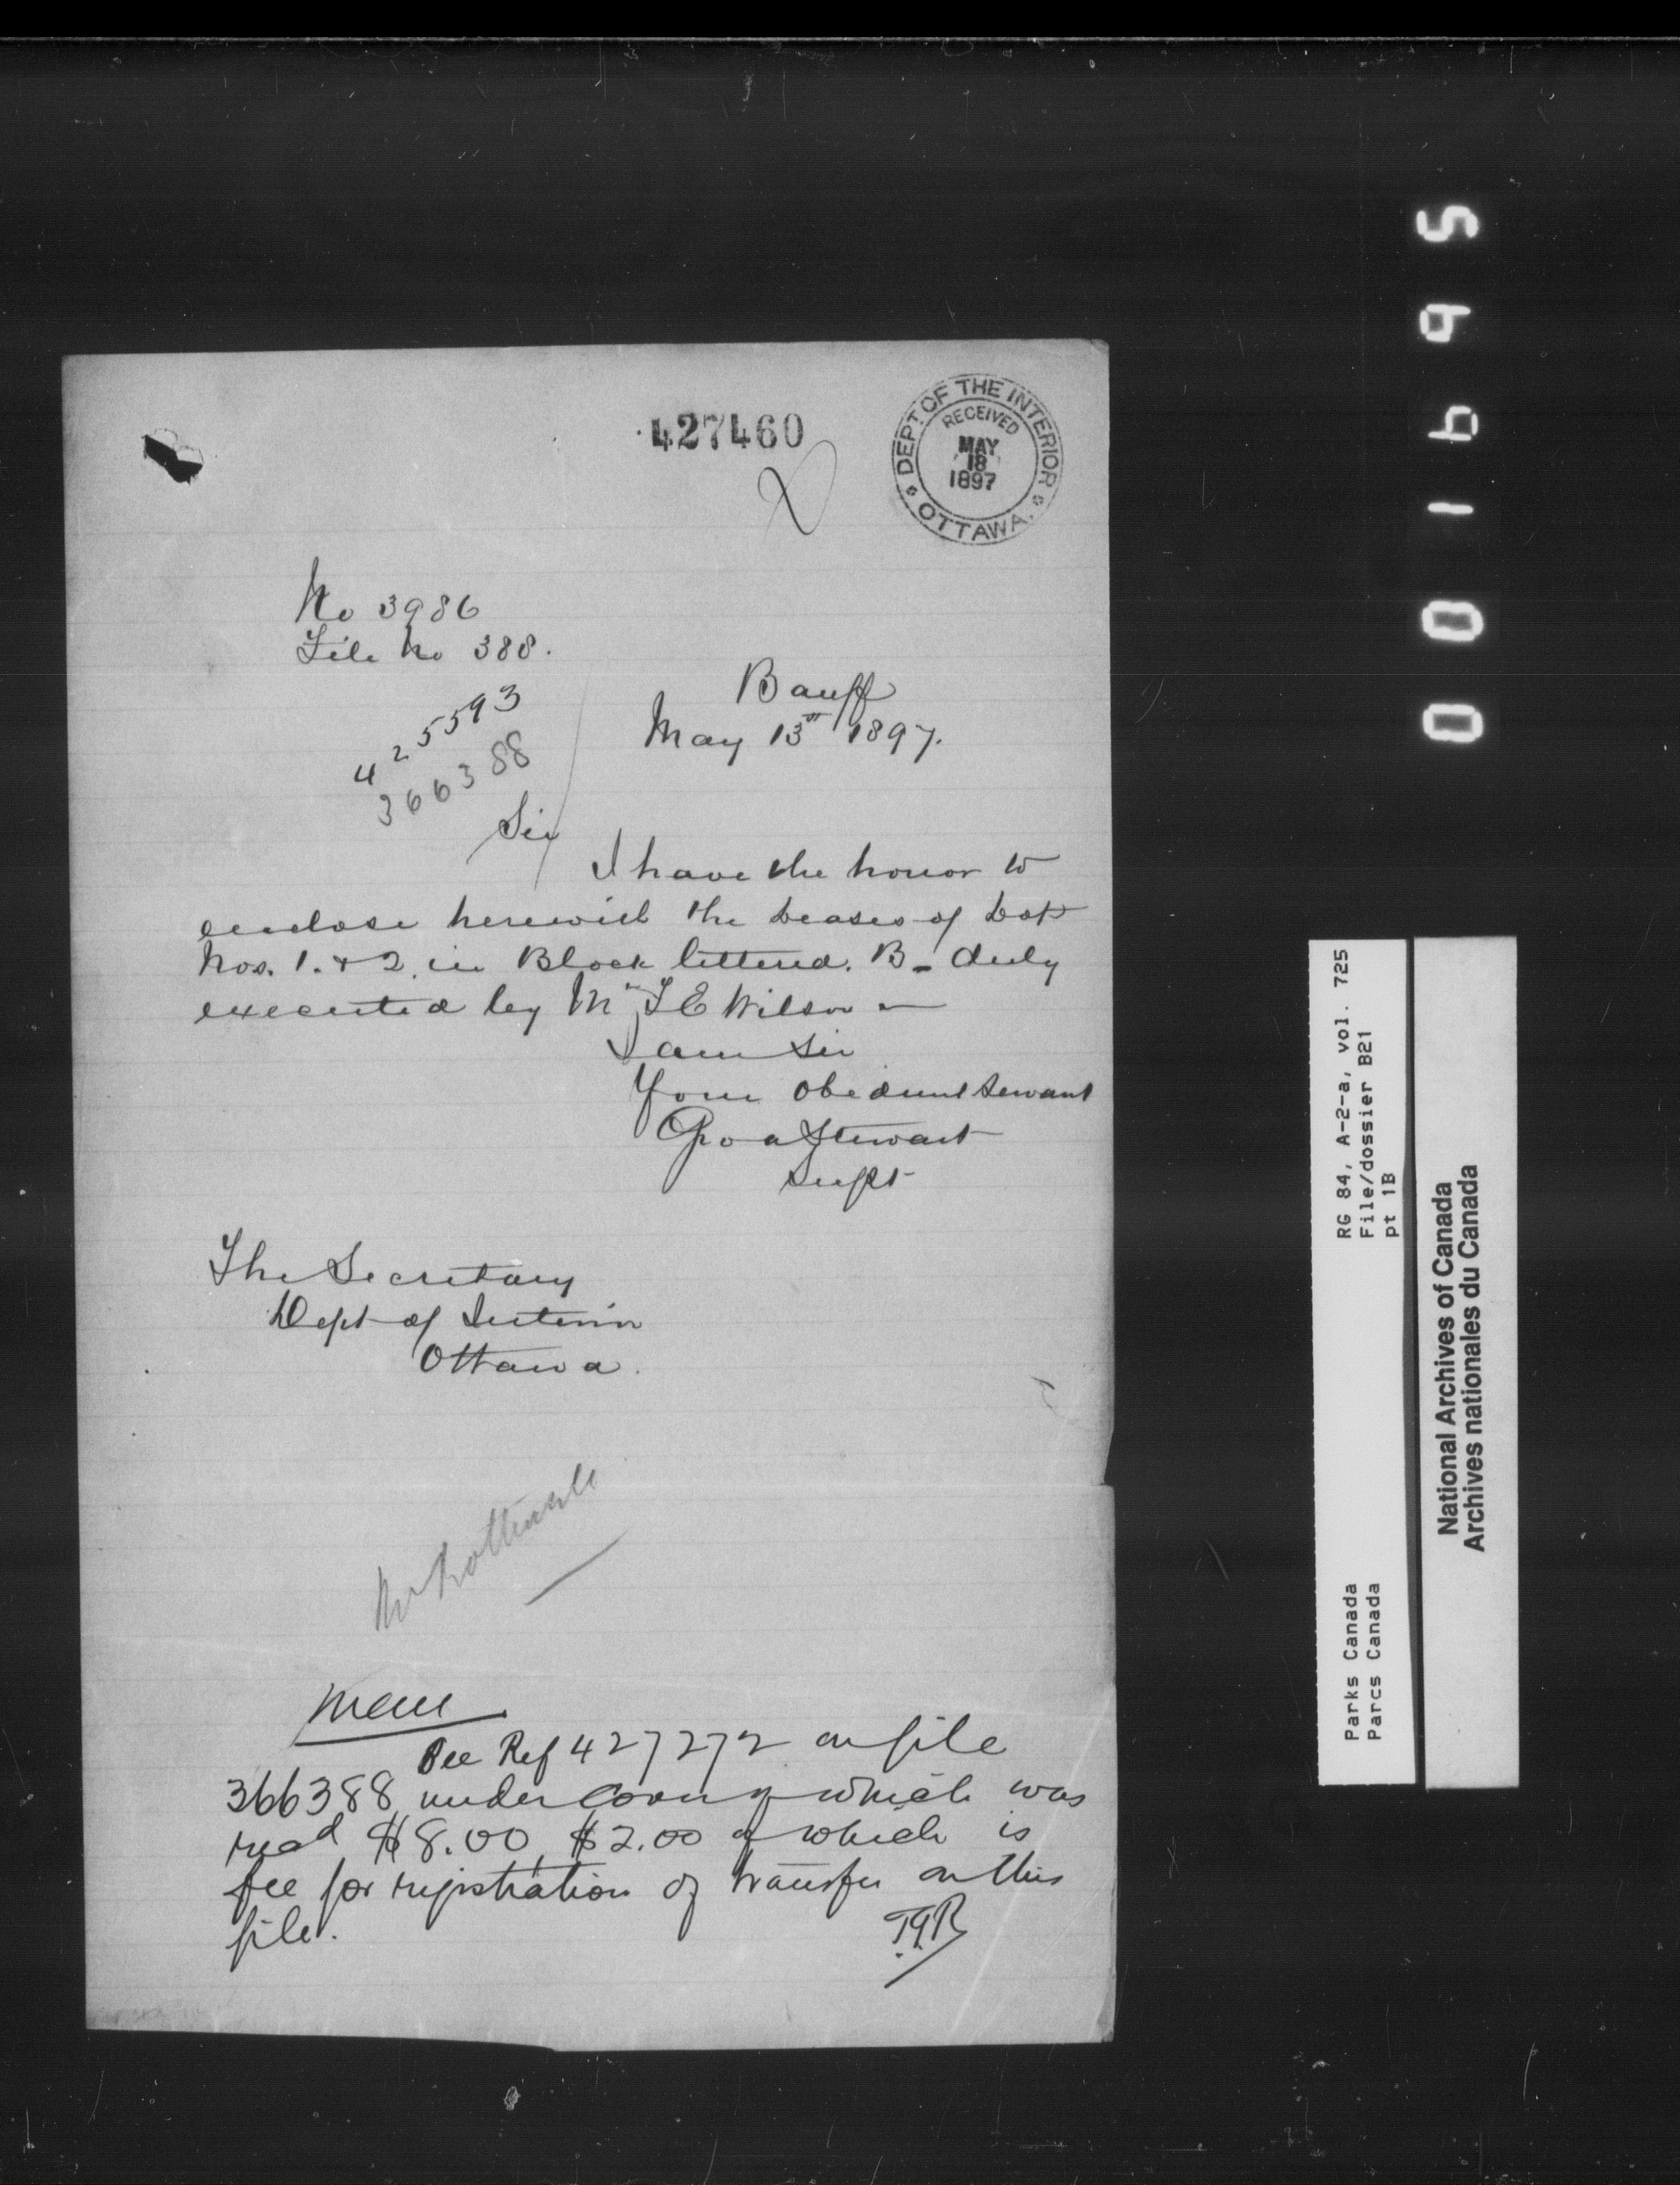 427460
DEPT OF THE INTERIOR
RECEIVED
MAY
18
1897
OTTAWA.
No 3986
File No 388.
425593
366388
Banff
May 13th 1897.
Sir
I have the honor to
enclose herewith the Leases of Lots
Nos. 1. & 2. in Block lettered. B - duly
executed by Mr T E Wilson
I am Sir
Your Obedient Servant
Geo A Stewart
Supt
The Secretary
Dept of Interior
Ottawa.
Mr
Mem
See Ref 427272 on file
366388 under cover of which was
recd $8.00, $2.00 of which is
fee for registration of transfer on this
file.
001695
RG 84, A-2-a, vol. 725
File/dossier B21
pt 1B
Parks Canada
Parcs Canada
National Archives of Canada
Archives nationales du Canada